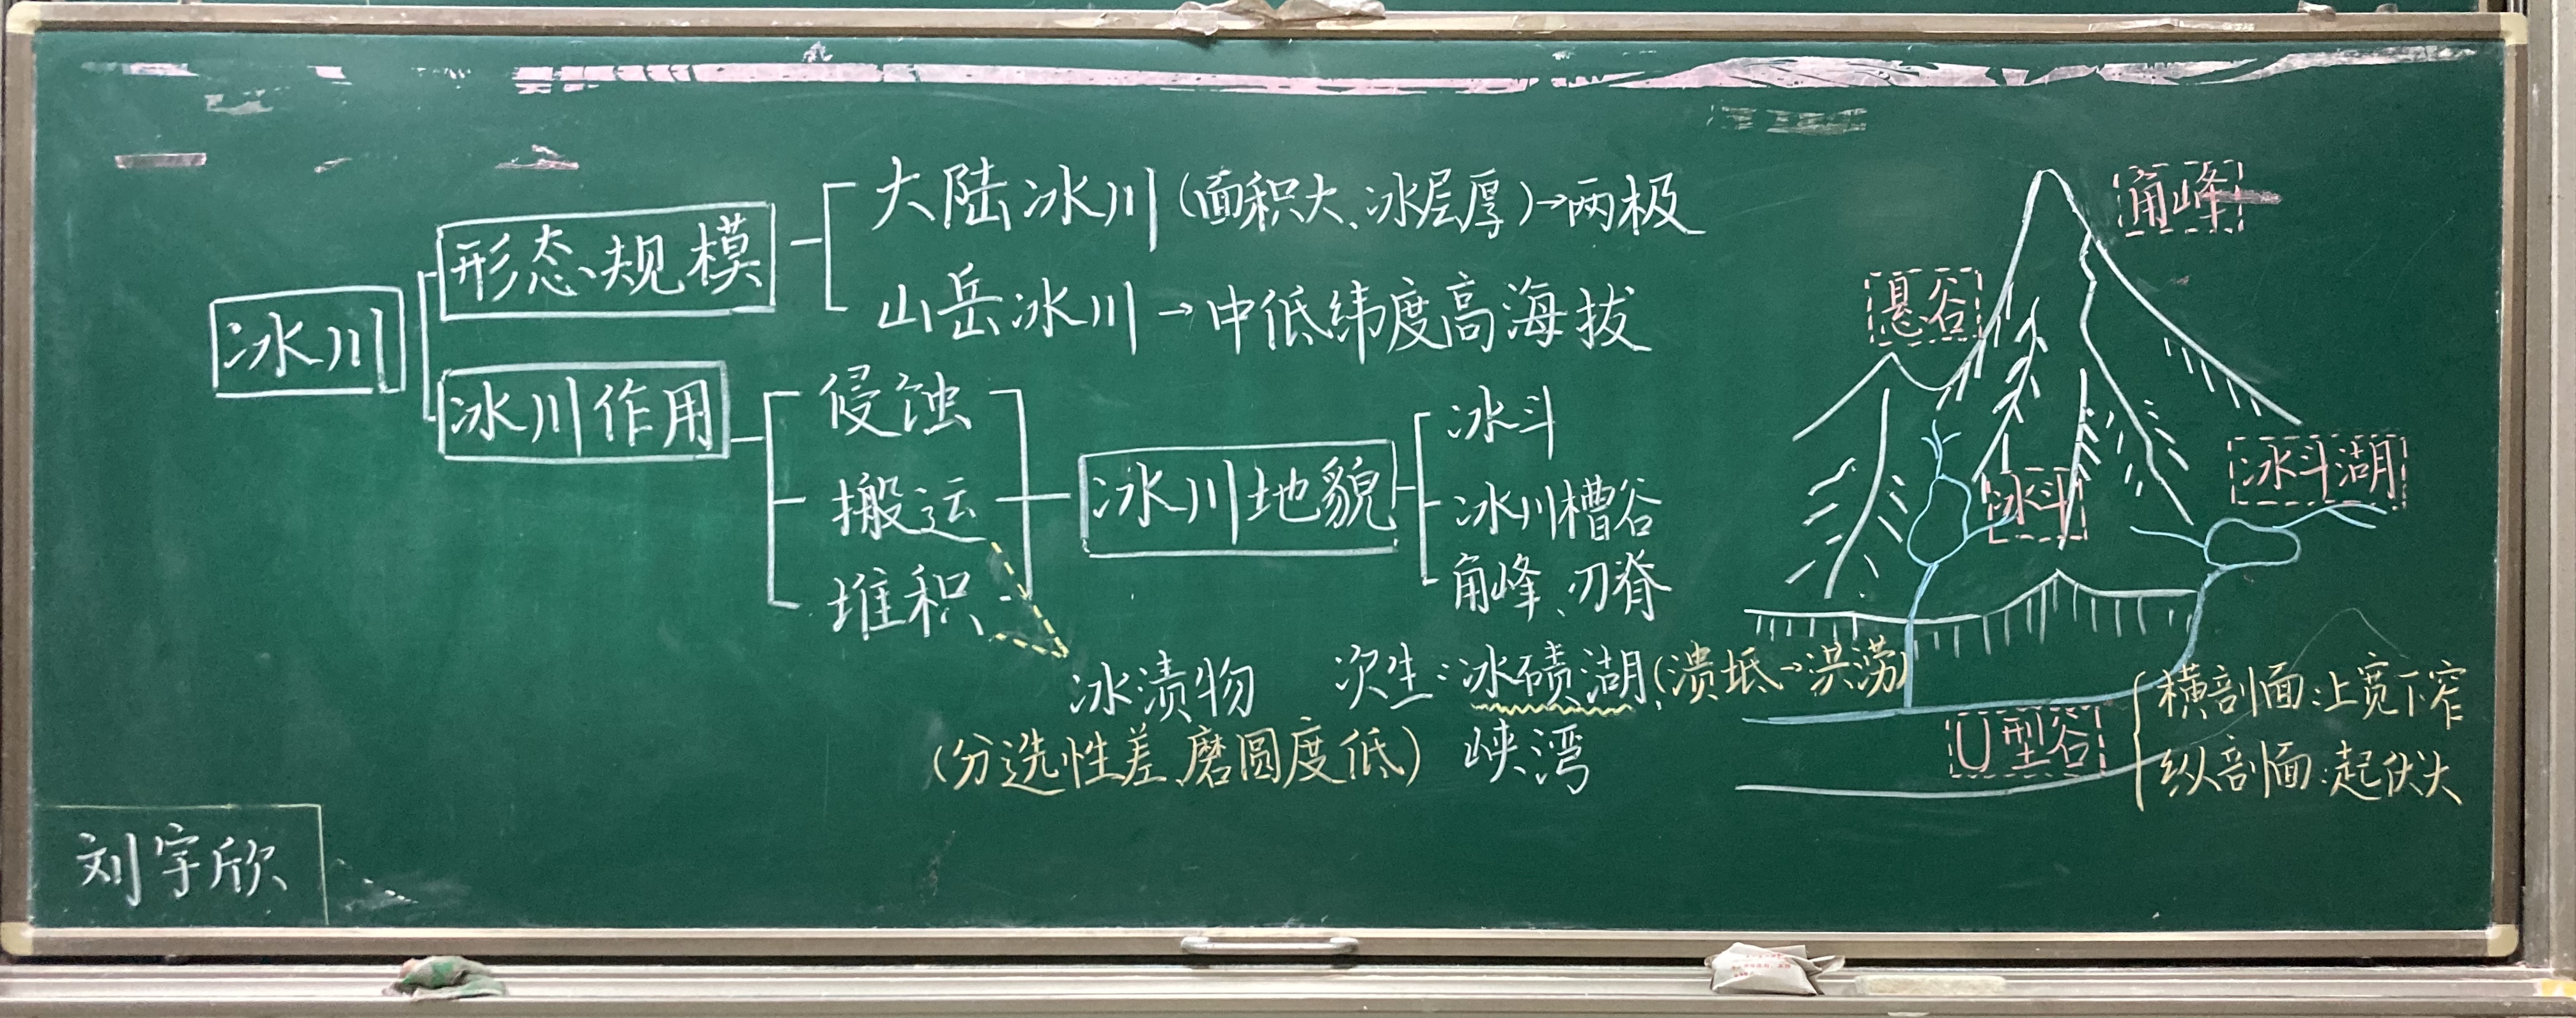 冰川
形态、规模
大陆冰川(面积大、冰层厚)→两极
山岳冰川→中低纬度高海拔
冰川作用
侵蚀
搬运
堆积
冰川地貌
冰斗
冰川槽谷
角峰、刃脊
冰渍物
(分选性差、磨圆度低)
次生:冰碛湖(溃坻→洪涝)
峡湾
角峰
悬谷
冰斗
冰斗湖
U型谷
横剖面:上宽下窄
纵剖面:起伏大
刘宇欣